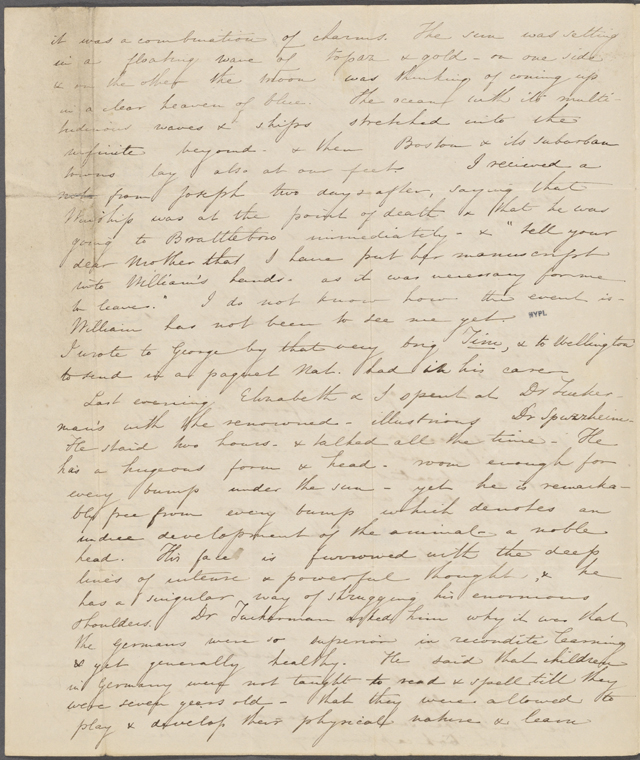 it was a combination of charms. The sun was setting
in a floating wave of topaz & gold - on one side
& on the other the moon was thinking of coming up
in a clear heaven of blue. The ocean with its multi-
tudinous waves & ships stretched into the
infinite beyond - & then Boston & its suburban
towns lay also at our feet I recieved a
note from Joseph two days after, saying that
was at the point of death & that he was
going to Brattleboro immediately - & "tell your
dear Mother that I have put her manuscript
into William's hands - as it was necessary for me
to leave." I do not know how the event is -
William has not been to see me yet. NYPL
I wrote to George by that very brig Tim, & to Wellington
to send in a paquet Nat. had in his care
Last evening Elizabeth & I spent at Dr Tucker-
man's with the renowned - illustrious Dr Spurzheim -
He staid two hours - & talked all the time - He
has a hugeous form & head - room enough for
every bump under the sun - yet he is remarka-
bly free from every bump which denotes an
undue development of the animal - a noble
head. His face is furrowed with the deep
lines of intense & powerful thought, & he
has a singular way of shrugging his enormous
shoulders. Dr. Tuckerman asked him why it was that
the Germans were so superior in recondite learning
& yet generally healthy. He said that children
in Germany were not taught to read & spell till they
were seven years old - that they were allowed to
play & develop their physical nature & learn